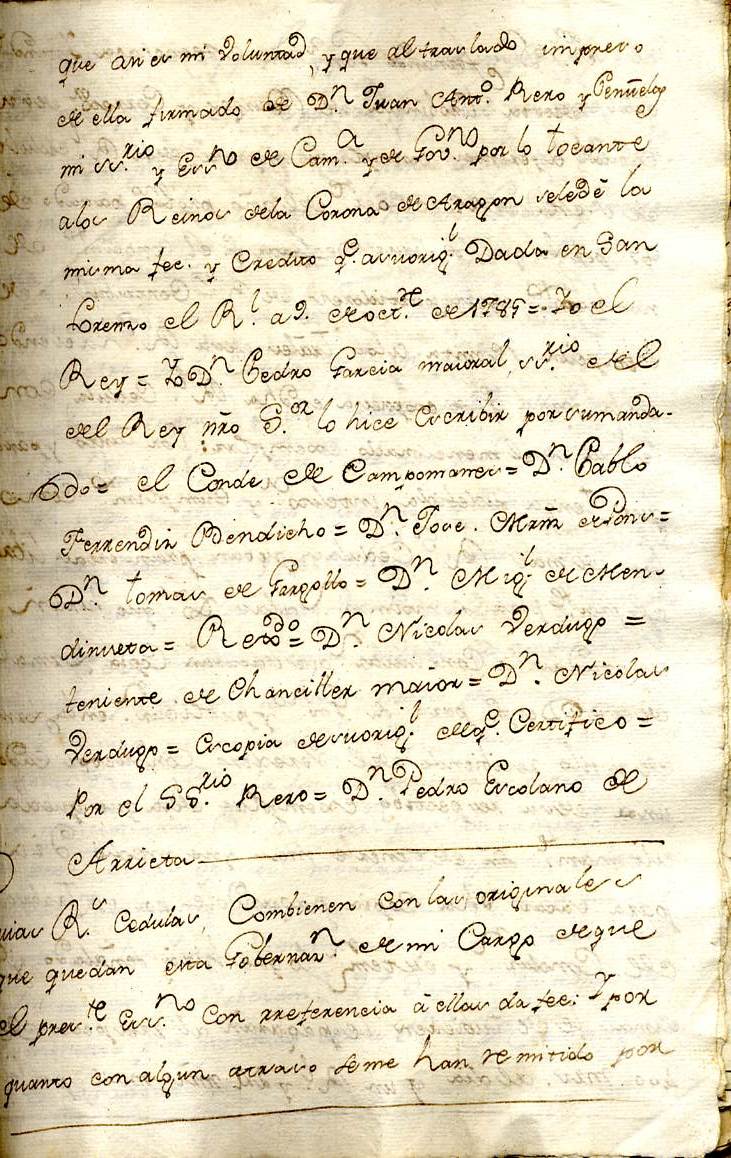 que asi es mi Voluntad, y que al traslado impreso
de ella firmado de Dⁿ Juan Antº. Rero y Peñuelas
mi ss.ʳⁱᵒ y Essⁿᵒ de Cam.ᵃ y de Gov.ⁿᵒ por lo tocante
a los Reinos de la Corona de Aragon se le dē la
misma fee. y Credito q.ᵉ a su orig.ˡ Dada en San
Lorenzo el R.ˡ a 9. de oct.ʳᵉ de 1785 = Yo el
Rey = Yo Dⁿ. Pedro Garcia maioral, ss.ʳⁱᵒ de el
del Rey ñro S.ᵒʳ lo hice escribir por su manda-
do = el Conde de Campomanes = Dⁿ. Pablo
Ferrendiz Bendicho = Dⁿ. Jose. Mrñz de Pons =
Dⁿ. tomas de Gargollo = Dⁿ. Mig.ˡ de Men
dinueta = Reg.ᵗᵈᵒ = Dⁿ. Nicolas Verdugo =
teniente de Chanciller maior = Dⁿ. Nicolas
Verdugo = Es copia de su orig.ˡ de q.ᵉ Certifico =
Por el SS.ʳⁱᵒ Rero = Dⁿ. Pedro Escolano de
Arrieta
R.ˢ Cedulas, Combienen con las originales
que quedan esta Gobernaⁿ. de mi Cargo de que
el pres.ᵗᵉ Ess.ⁿᵒ con rreferencia á ellas da fee: Y por
quanto con algun atraso se me han remitido por